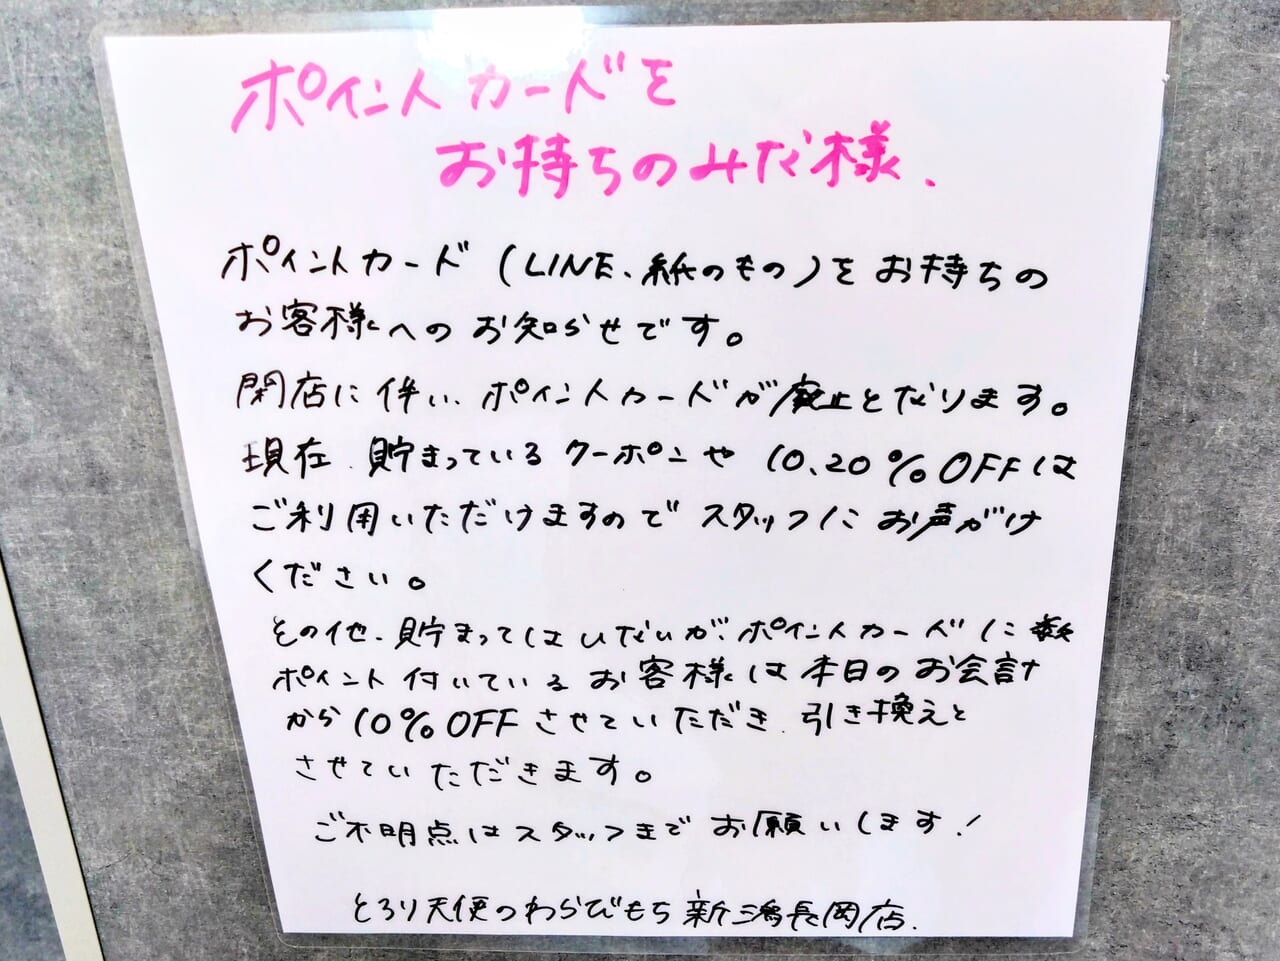 ポイントカードを
お持ちのみな様、
ポイントカード(LINE、紙のもの)をお持ちの
お客様へのお知らせです。
閉店に伴い、ポイントカードが廃止となります。
現在、貯まっているクーポンや10、20%OFFは
ご利用いただけますのでスタッフにお声がけ
ください。
その他、貯まってはいないが、ポイントカードに数
ポイント付いているお客様は本日のお会計
から10%OFFさせていただき、引き換えと
させていただきます。
ご不明点はスタッフまでお願いします!
とろり天使のわらびもち新潟長岡店、